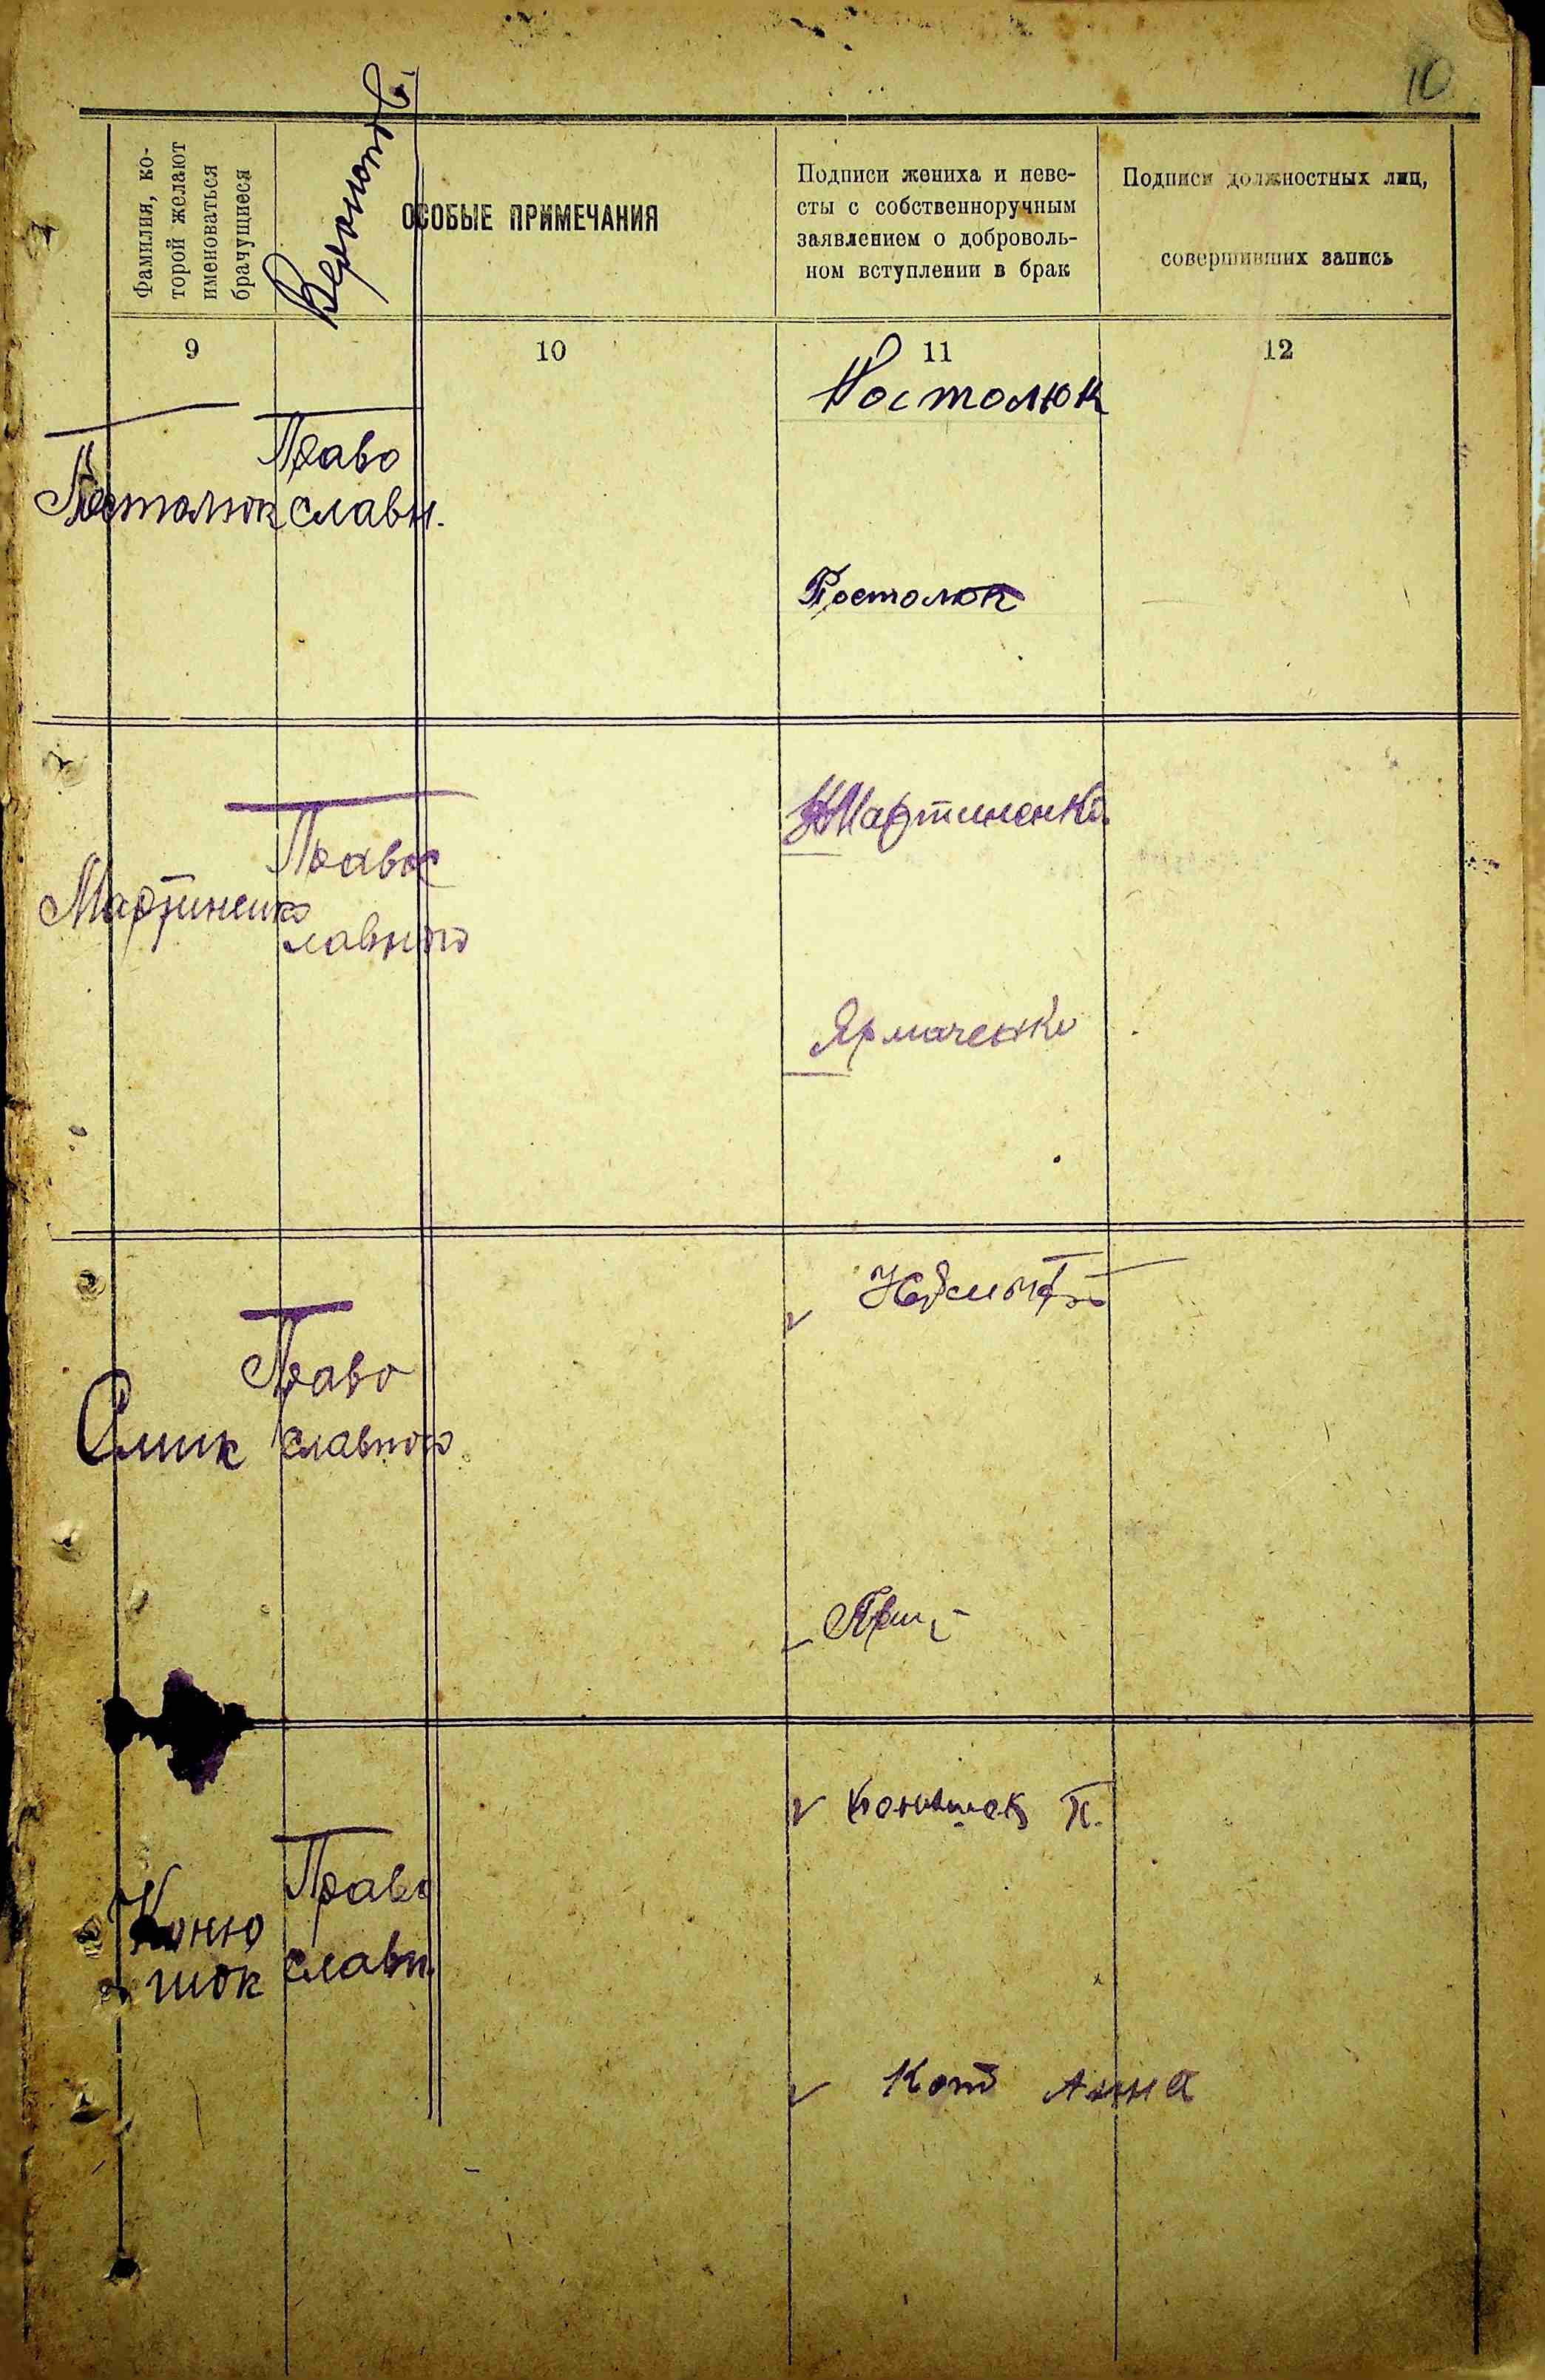 10
Фамилия, ко-
торой желают
именоваться
брачущиеся
ОСОБЫЕ ПРИМЕЧАНИЯ
Подписи жениха и неве-
сты с собственноручным
заявлением о доброволь-
ном вступлении в брак
Подписи должностных лиц,
совершивших запись
9
10
11
12
Постолюк
Право
Постолюк славн.
Постолюк
Мартиненко
Правос
Мартиненко
лавного
Ярмаченко
Право
славного
Конюшек П.
Право
Коню
шок славн.
Кот Анна